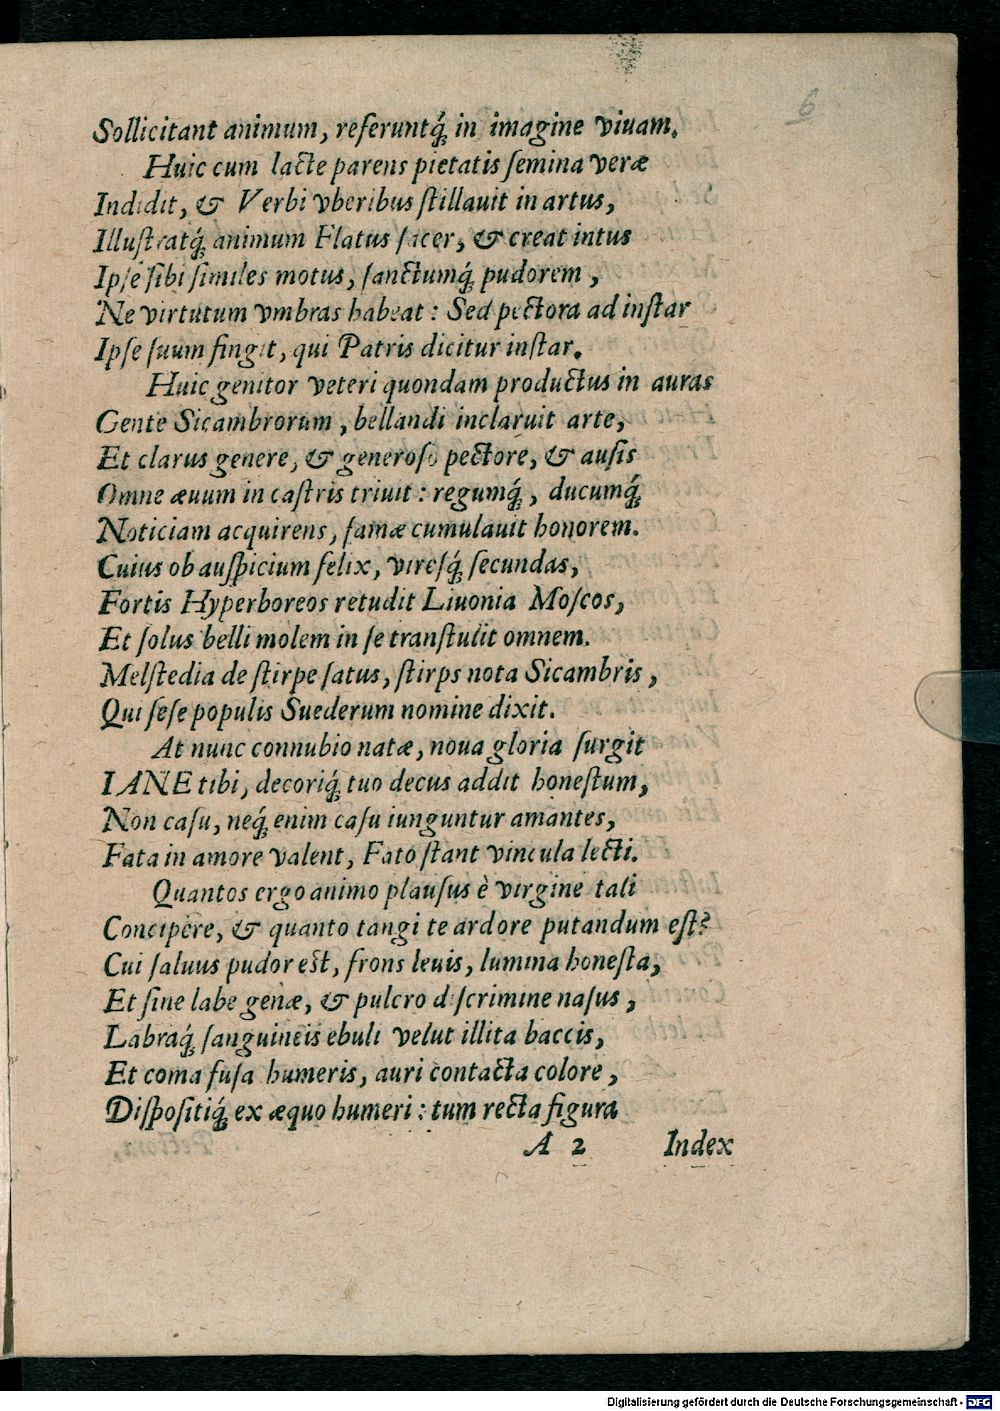 6
Sollicitant animum, referuntq́; in imagine viuam.
Huic cum lacte parens pietatis ſemina veræ
Indidit, & Verbi vberibus ſtillauit in artus,
Illuſtratq́; animum Flatus ſacer, & creat intus
Ipſe ſibi ſimiles motus, ſanctumq́; pudorem,
Ne virtutum vmbras habeat: Sed pectora ad inſtar
Ipſe ſuum fingit, qui Patris dicitur inſtar.
Huic genitor veteri quondam productus in auras
Gente Sicambrorum, bellandi inclaruit arte,
Et clarus genere, & generoſo pectore, & auſis
Omne æuum in caſtris triuit: regumq́;, ducumq́;
Noticiam acquirens, famæ cumulauit honorem.
Cuius ob auſpicium felix, viresq́; ſecundas,
Fortis Hyperboreos retudit Liuonia Moſcos,
Et ſolus belli molem in ſe tranſtulit omnem.
Melſtedia de ſtirpe ſatus, ſtirps nota Sicambris,
Qui ſeſe populis Suederum nomine dixit.
At nunc connubio natæ, noua gloria ſurgit
IANE tibi, decoriq́; tuo decus addit honeſtum,
Non caſu, neq́; enim caſu iunguntur amantes,
Fata in amore valent, Fato ſtant vincula lecti.
Quantos ergo animo plauſus è virgine tali
Concipere, & quanto tangi te ardore putandum eſt?
Cui ſaluus pudor eſt, frons leuis, lumina honeſta,
Et ſine labe genæ, & pulcro diſcrimine naſus,
Labraq́; ſanguineis ebuli velut illita baccis,
Et coma fuſa humeris, auri contacta colore,
Diſpoſitiq́; ex æquo humeri: tum recta figura
A 2 Index
Digitalisierung gefördert durch die Deutsche Forschungsgemeinschaft - DFG